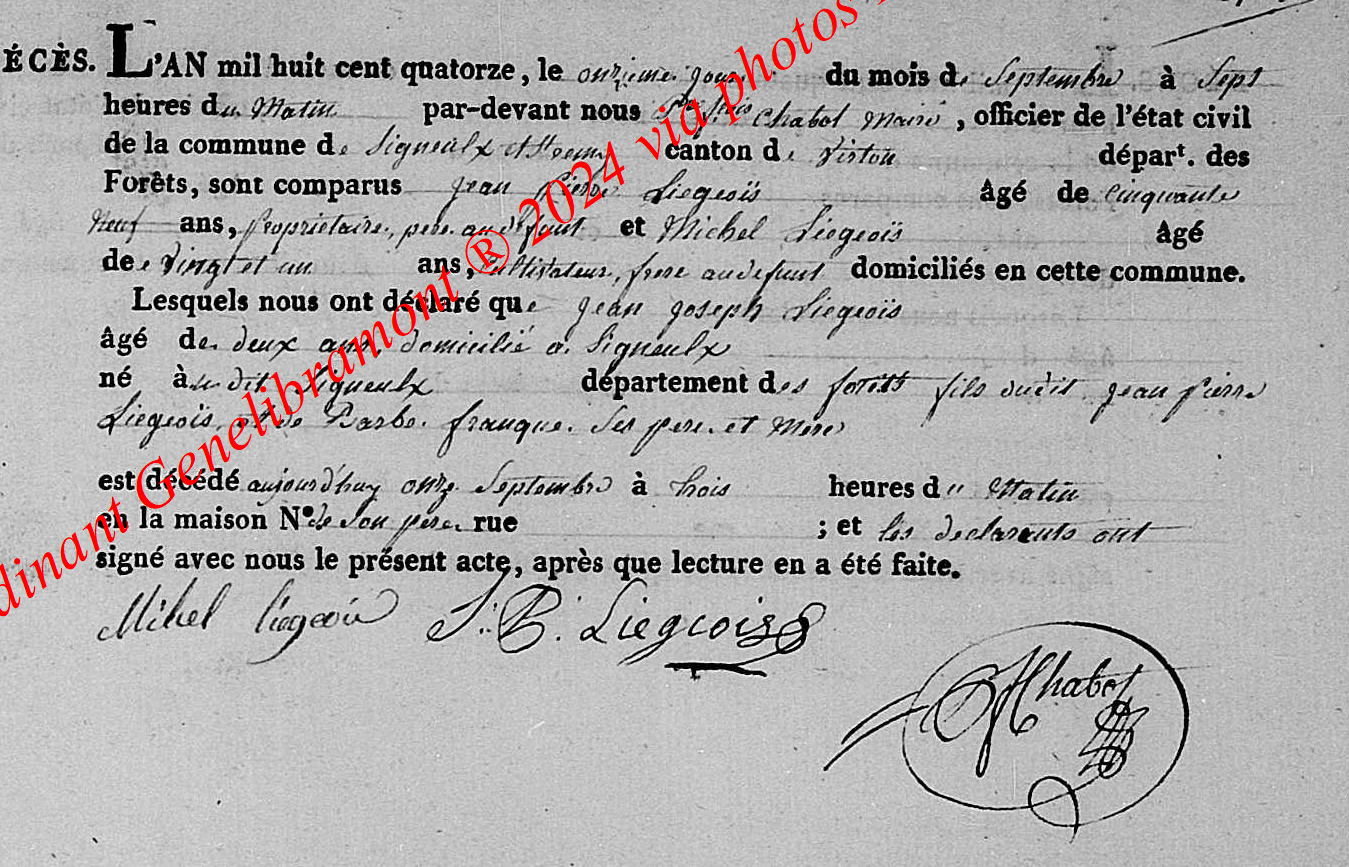 ÉCÈS. L'AN mil huit cent quatorze, le onzieme jour du mois de Septembre à Sept
heures du Matin par-devant nous Chabot Maire, officier de l'état civil
de la commune de Signeulx et canton de Virton départ. des
Forêts, sont comparus jean Pierre Liegeois âgé de Cinquante
Neuf ans, proprietaire, pere au defunt et Michel Liegeois âgé
de Vingt et un ans, Cultivateur, frere au defunt domiciliés en cette commune.
Lesquels nous ont déclaré que jean joseph Liegeois
âgé de deux ans, domicilié a Signeulx
né à dit Signeulx département des forets fils dudit jean pierre
Liegeois, et de Barbe franque ses pere et Mere
est décédé aujourd'huy onze Septembre à trois heures du Matin
en la maison N° de son pere rue ; et les declarants ont
signé avec nous le présent acte, après que lecture en a été faite.
Mihel liegeois J. P. Liegeois
Chabot
dinant Genelibramont ® 2024 via photos